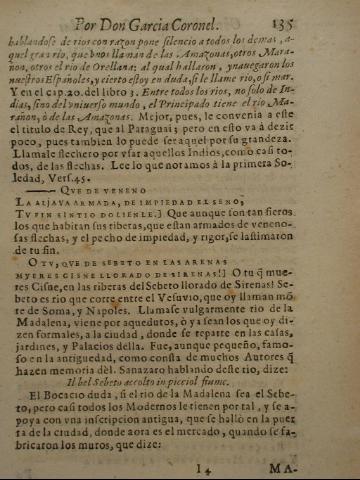 Por Don Garcia Coronel. 135
hablandose de rios con razon pone silencio a todos los demas, a-
quel gran rio, que vnos llaman de las Amazonas, otros Mara-
ñon, otros el rio de Orellana: al qual hallaron, y nauegaron los
nuestros Españoles, y cierto estoy en duda, si le llame rio, o si mar.
Y en el cap. 20. del libro 3. Entre todos los rios, no solo de In-
dias, sino del vniuerso mundo, el Principado tiene el rio Ma-
rañon, ò de las Amazonas. Mejor, pues, le conuenia a este
el titulo de Rey, que al Paraguai; pero en esto va à dezir
poco, pues tambien lo puede ser aquel por su grandeza.
Llamale flechero por vsar aquellos Indios, como casi to-
dos, de las flechas. Lee lo que notamos à la primera So-
ledad, Vers. 45.
QVE DE VENENO
LA ALJAVA ARMADA, DE IMPIEDAD EL SENO,
TV FIN SINTIO DOLIENLE.] Que aunque son tan fieros
los que habitan sus riberas, que estan armados de veneno-
sas flechas, y el pecho de impiedad, y rigor, se lastimaron
de tu fin.
O TV, QVE DE SEBETO EN LAS ARENAS
MVERES CISNE LLORADO DE SIRENAS!] O tu q̃ mue-
res Cisne, en las riberas del Sebeto llorado de Sirenas! Se-
beto es rio que corre entre el Vesuvio, que oy llaman mõ
te de Soma, y Napoles. Llamase vulgarmente rio de la
Madalena, viene por aquedutos, ò ya sean los que oy di-
zen formales, a la ciudad, donde se reparte en las casas,
jardines, y Palacios della. Fue, aunque pequeño, famo-
so en la antiguedad, como consta de muchos Autores q̃
hazen memoria dèl. Sanazaro hablando deste rio, dize:
Il bel Sebeto accolto in picciol fiume.
El Bocacio duda, si el rio de la Madalena sea el Sebe-
to, pero casi todos los Modernos le tienen por tal, y se a-
poya con vna inscripcion antigua, que se hallò en la puer
ta de la ciudad, donde aora es el mercado, quando se fa-
bricaron los muros, que dize:
I4 MA-